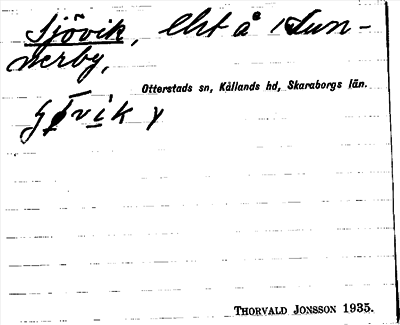 Sjövik, lht å 1 Sun-
nerby,
Otterstads sn, Kållands hd, Skaraborgs län.
THORVALD JONSSON 1935.